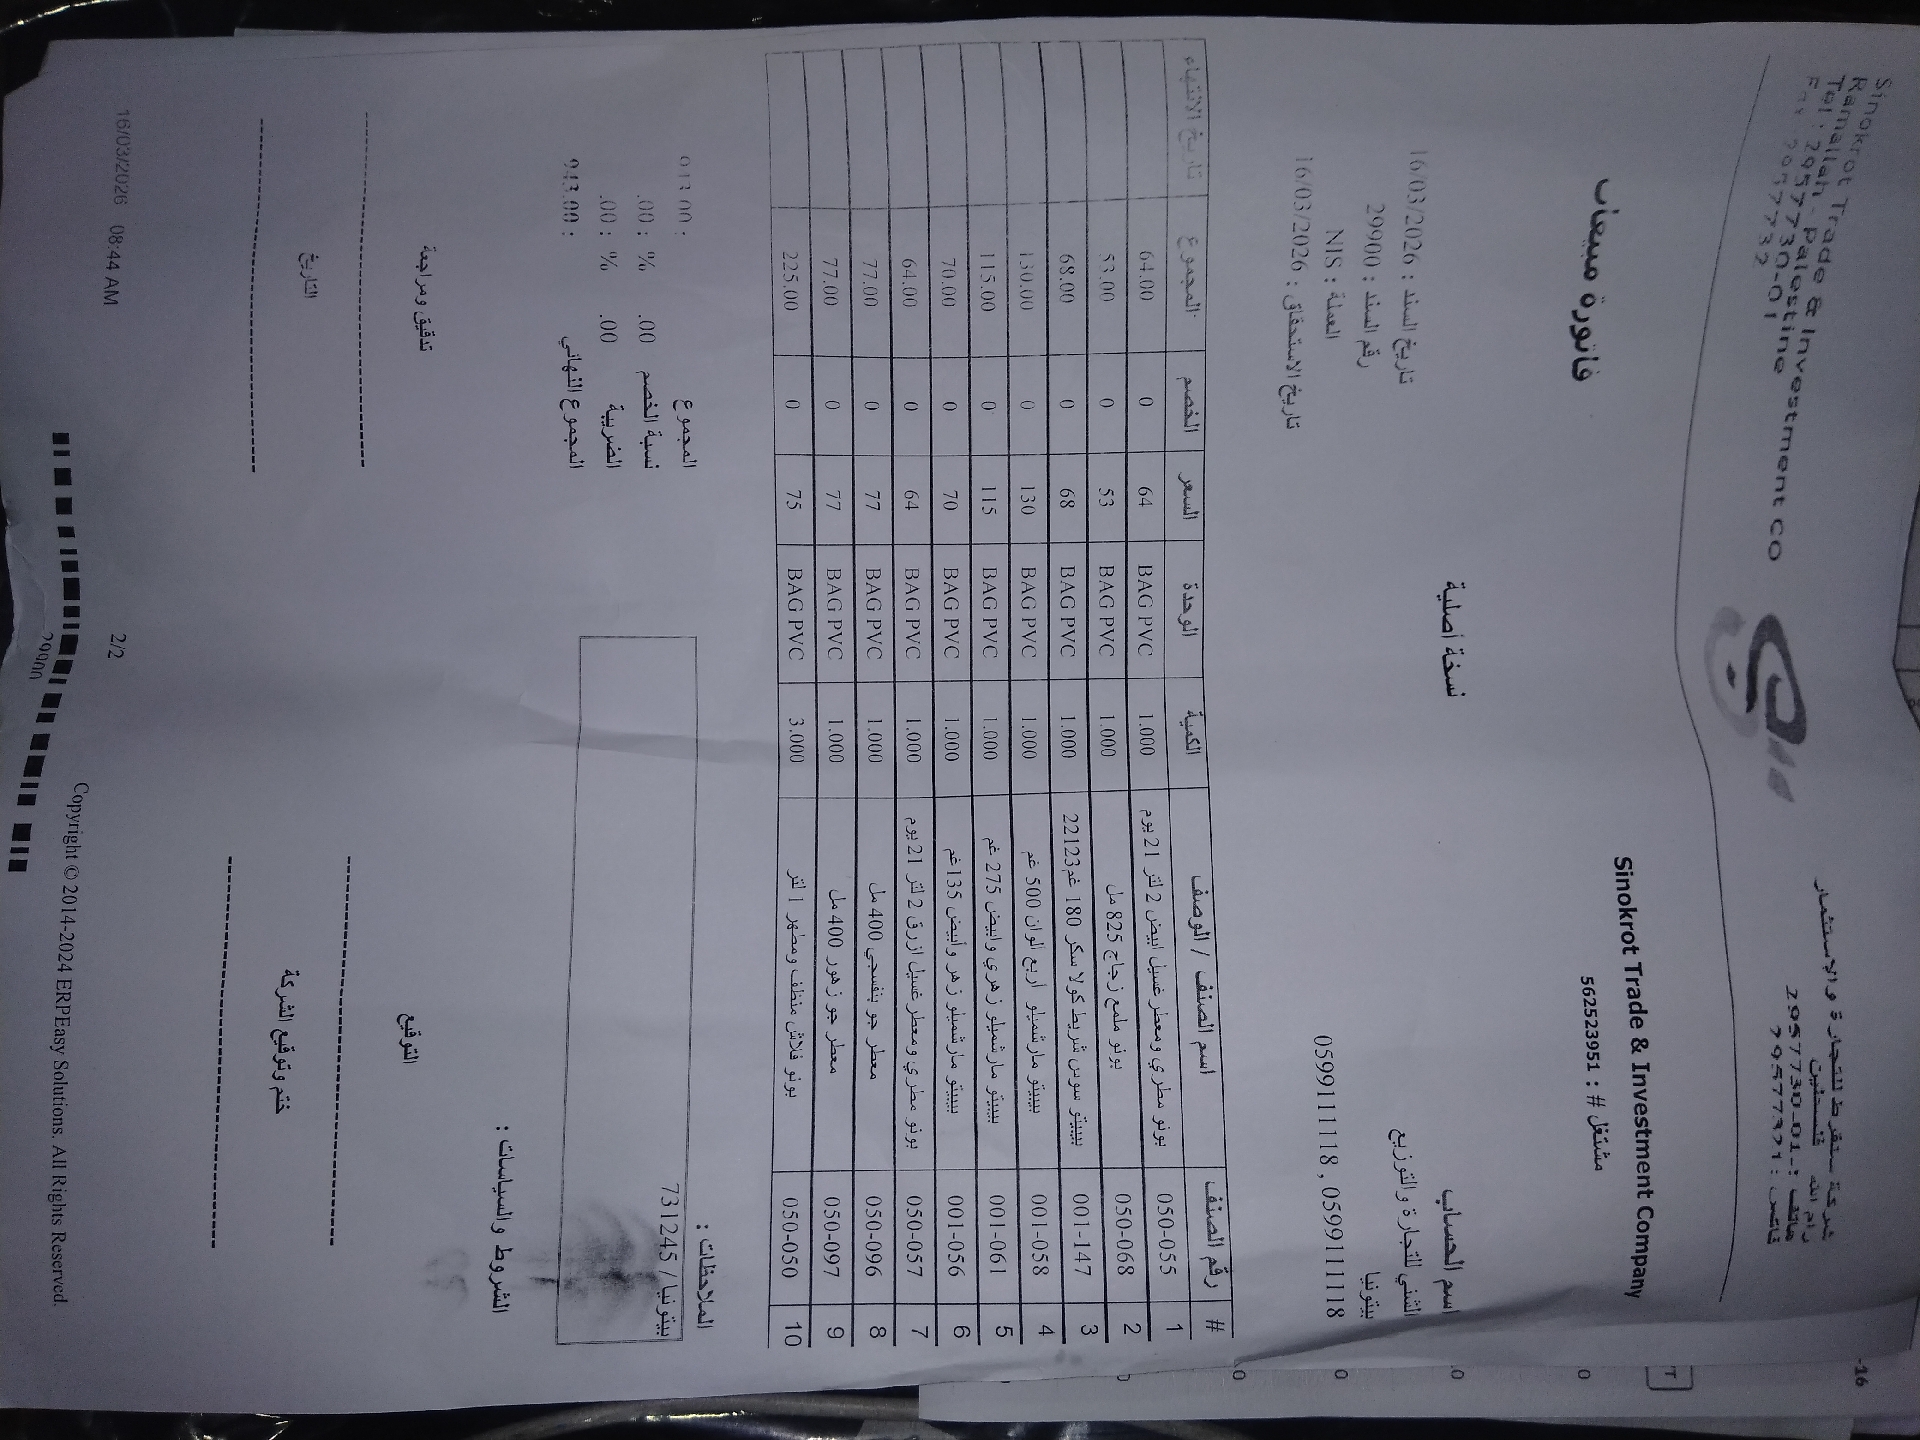 Sinokrot Trade & Investment CO
Ramallah - Palestine
Tel : 2957730-01
2957732
شركة سنقرط للتجارة والإستثمار
رام الله فلسطين
هاتف : 2957730-01
فاكس :
Sinokrot Trade & Investment Company
مشتغل # : 562523951
فاتورة مبيعات
نسخة أصلية
اسم الحساب
الشني للتجارة والتوزيع
بيتونيا
0599111118 , 0599111118
تاريخ السند : 16/03/2026
رقم السند : 29900
العملة : NIS
تاريخ الاستحقاق : 16/03/2026
# رقم الصنف اسم الصنف / الوصف الكمية الوحدة السعر الخصم المجموع تاريخ الانتهاء
1 050-055 بونو مطري ومعطر غسيل ابيض 2 لتر 21 يوم 1.000 BAG PVC 64 0 64.00
2 050-068 بونو ملمع زجاج 825 مل 1.000 BAG PVC 53 0 53.00
3 001-147 بيبيتو سوس شريط كولا سكر 180 غم22123 1.000 BAG PVC 68 0 68.00
4 001-058 بيبيتو مارشميلو اربع ألوان 500 غم 1.000 BAG PVC 130 0 130.00
5 001-061 بيبيتو مارشميلو زهري وابيض 275 غم 1.000 BAG PVC 115 0 115.00
6 001-056 بيبيتو مارشميلو زهر وأبيض 135غم 1.000 BAG PVC 70 0 70.00
7 050-057 بونو مطري ومعطر غسيل ازرق 2 لتر 21 يوم 1.000 BAG PVC 64 0 64.00
8 050-096 معطر جو بنفسجي 400 مل 1.000 BAG PVC 77 0 77.00
9 050-097 معطر جو زهور 400 مل 1.000 BAG PVC 77 0 77.00
10 050-050 بونو فلاش منظف ومطهر 1 لتر 3.000 BAG PVC 75 0 225.00
الملاحظات :
بيتونيا / 731245
المجموع : 943.00
نسبة الخصم .00 % : .00
الضريبة .00 % : .00
المجموع النهائي : 943.00
الشروط والسياسات :
التوقيع
تدقيق ومراجعة
ختم وتوقيع الشركة
التاريخ
16/03/2026 08:44 AM
2/2
Copyright © 2014-2024 ERPEasy Solutions. All Rights Reserved.
29900